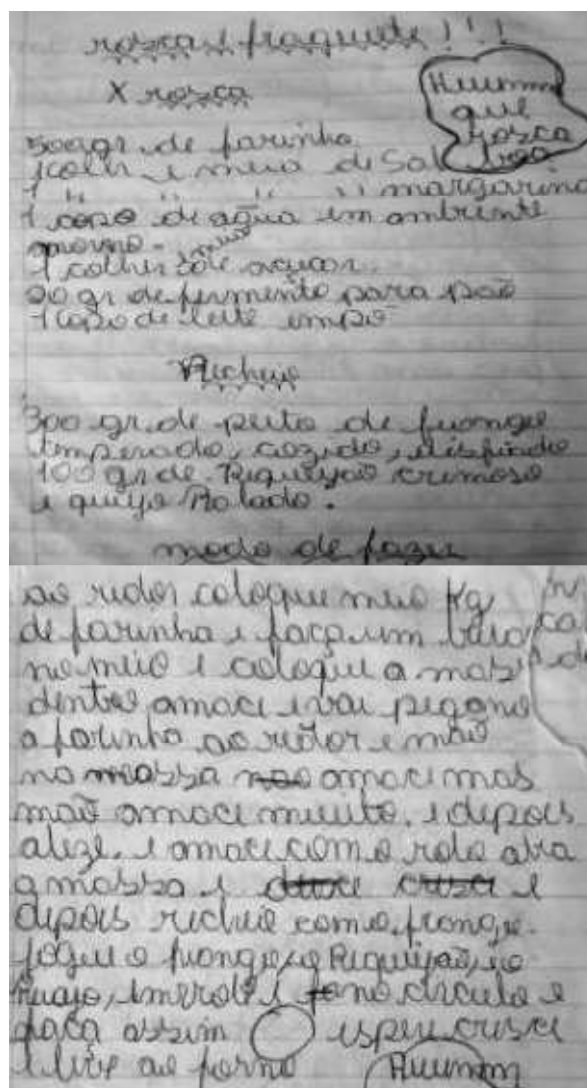 rosca e fraguete!!!
X rosca
Huumm
que
rosca
boa
500gr. de farinha
1colh e meia de Sal
1 " " " " margarina
1 copo de água em ambiente
morno.
1 colher de açucar.
90gr de fermento para pão
1 copo de leite em pó
Recheio
300 gr. de peito de frango
temperado, cozido, e disfiado
100gr de Riqueijão cremoso
e queijo Ralado.
modo de fazer
ao redor coloque meio Kg
de farinha e faça um
no meio e coloque a mas
dentro amace e vai pegano
a farinha ao redor e mão
na massa amace mas
mão amace muuito. e depois
e amace com o rolo abra
a massa e e
depois recheie com o frango.
jogue o frango, o Riqueijão, e o
enrole e no circulo e
faça assim espere cresce
e leve ao forno
Huumm